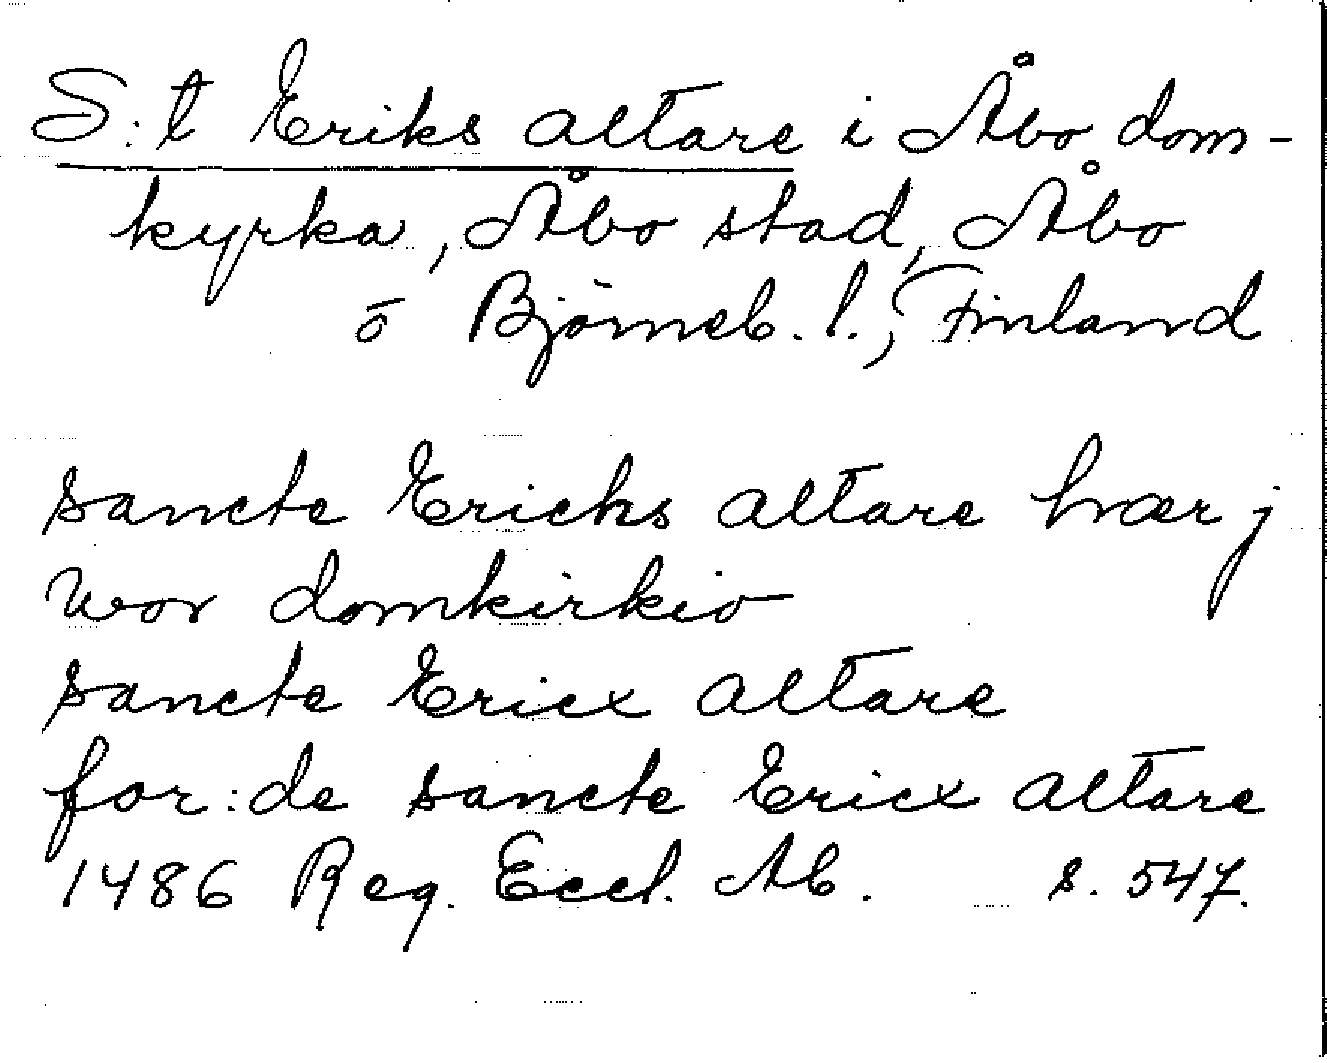 S:t Eriks altare i Åbo dom-
kyrka, Åbo stad, Åbo
o Björneb. l., Finland
sancte Ericks altare hwær j
wor domkirkio
sancte Ericx altare
for:de sancte Ericx altare
1486 Reg. Eccl. Ab. s. 547.